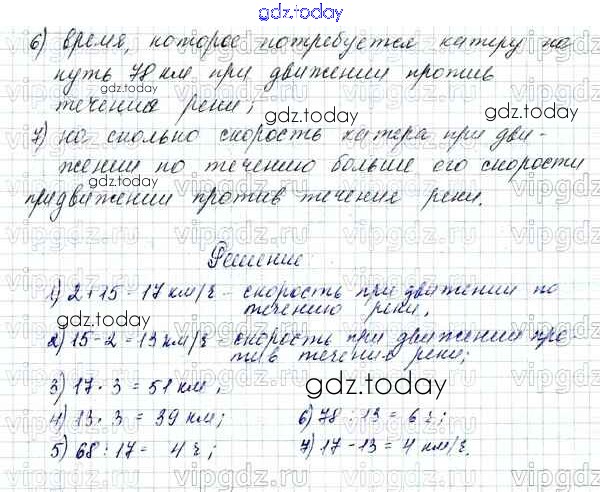 gdz.today
6) время, которое потребуется катеру на
путь 78 км при движении против
gdz.today
течения реки;
gdz.today
gdz.today
7) на сколько скорость катера при дви-
жении по течению больше его скорости
gdz.today
при движении против течения реки.
Решение:
1) 2+15 = 17 км/ч - скорость при движении по
течению реки,
gdz.today
2) 15-2 = 13 км/ч - скорость при движении про-
тив течения реки;
3) 17 · 3 = 51 км,
gdz.today
4) 13 · 3 = 39 км;
6) 78 : 13 = 6 ч;
5) 68 : 17 = 4 ч;
7) 17-13 = 4 км/ч.